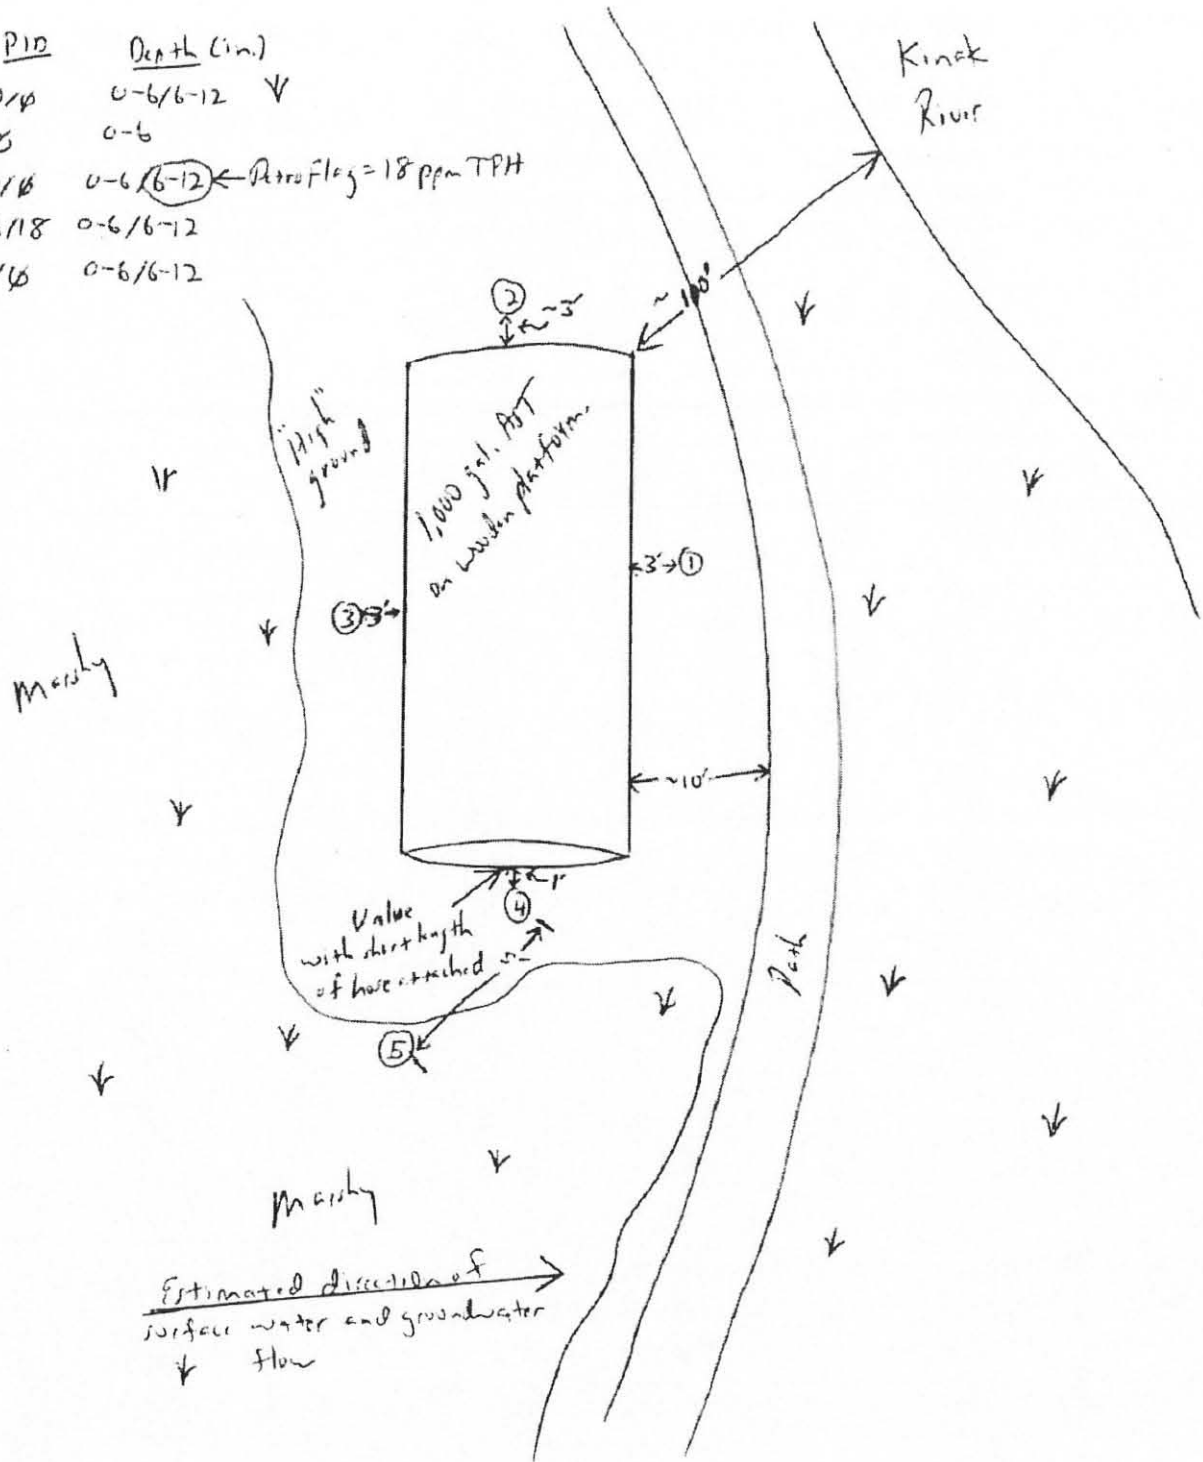 PID Depth (in.)
/ø 0-6/6-12
0-6
/ø 0-6/6-12 ← PetroFlag = 18 ppm TPH
/18 0-6/6-12
/ø 0-6/6-12
Kinak
River
~100'
② ~3'
"High"
ground
1,000 gal. AST
on wooden platform.
3' ①
③ 3'
Marshy
~10'
1'
④
Valve
with short length
of hose attached
5'
⑤
Path
Marshy
Estimated direction of
surface water and groundwater
flow